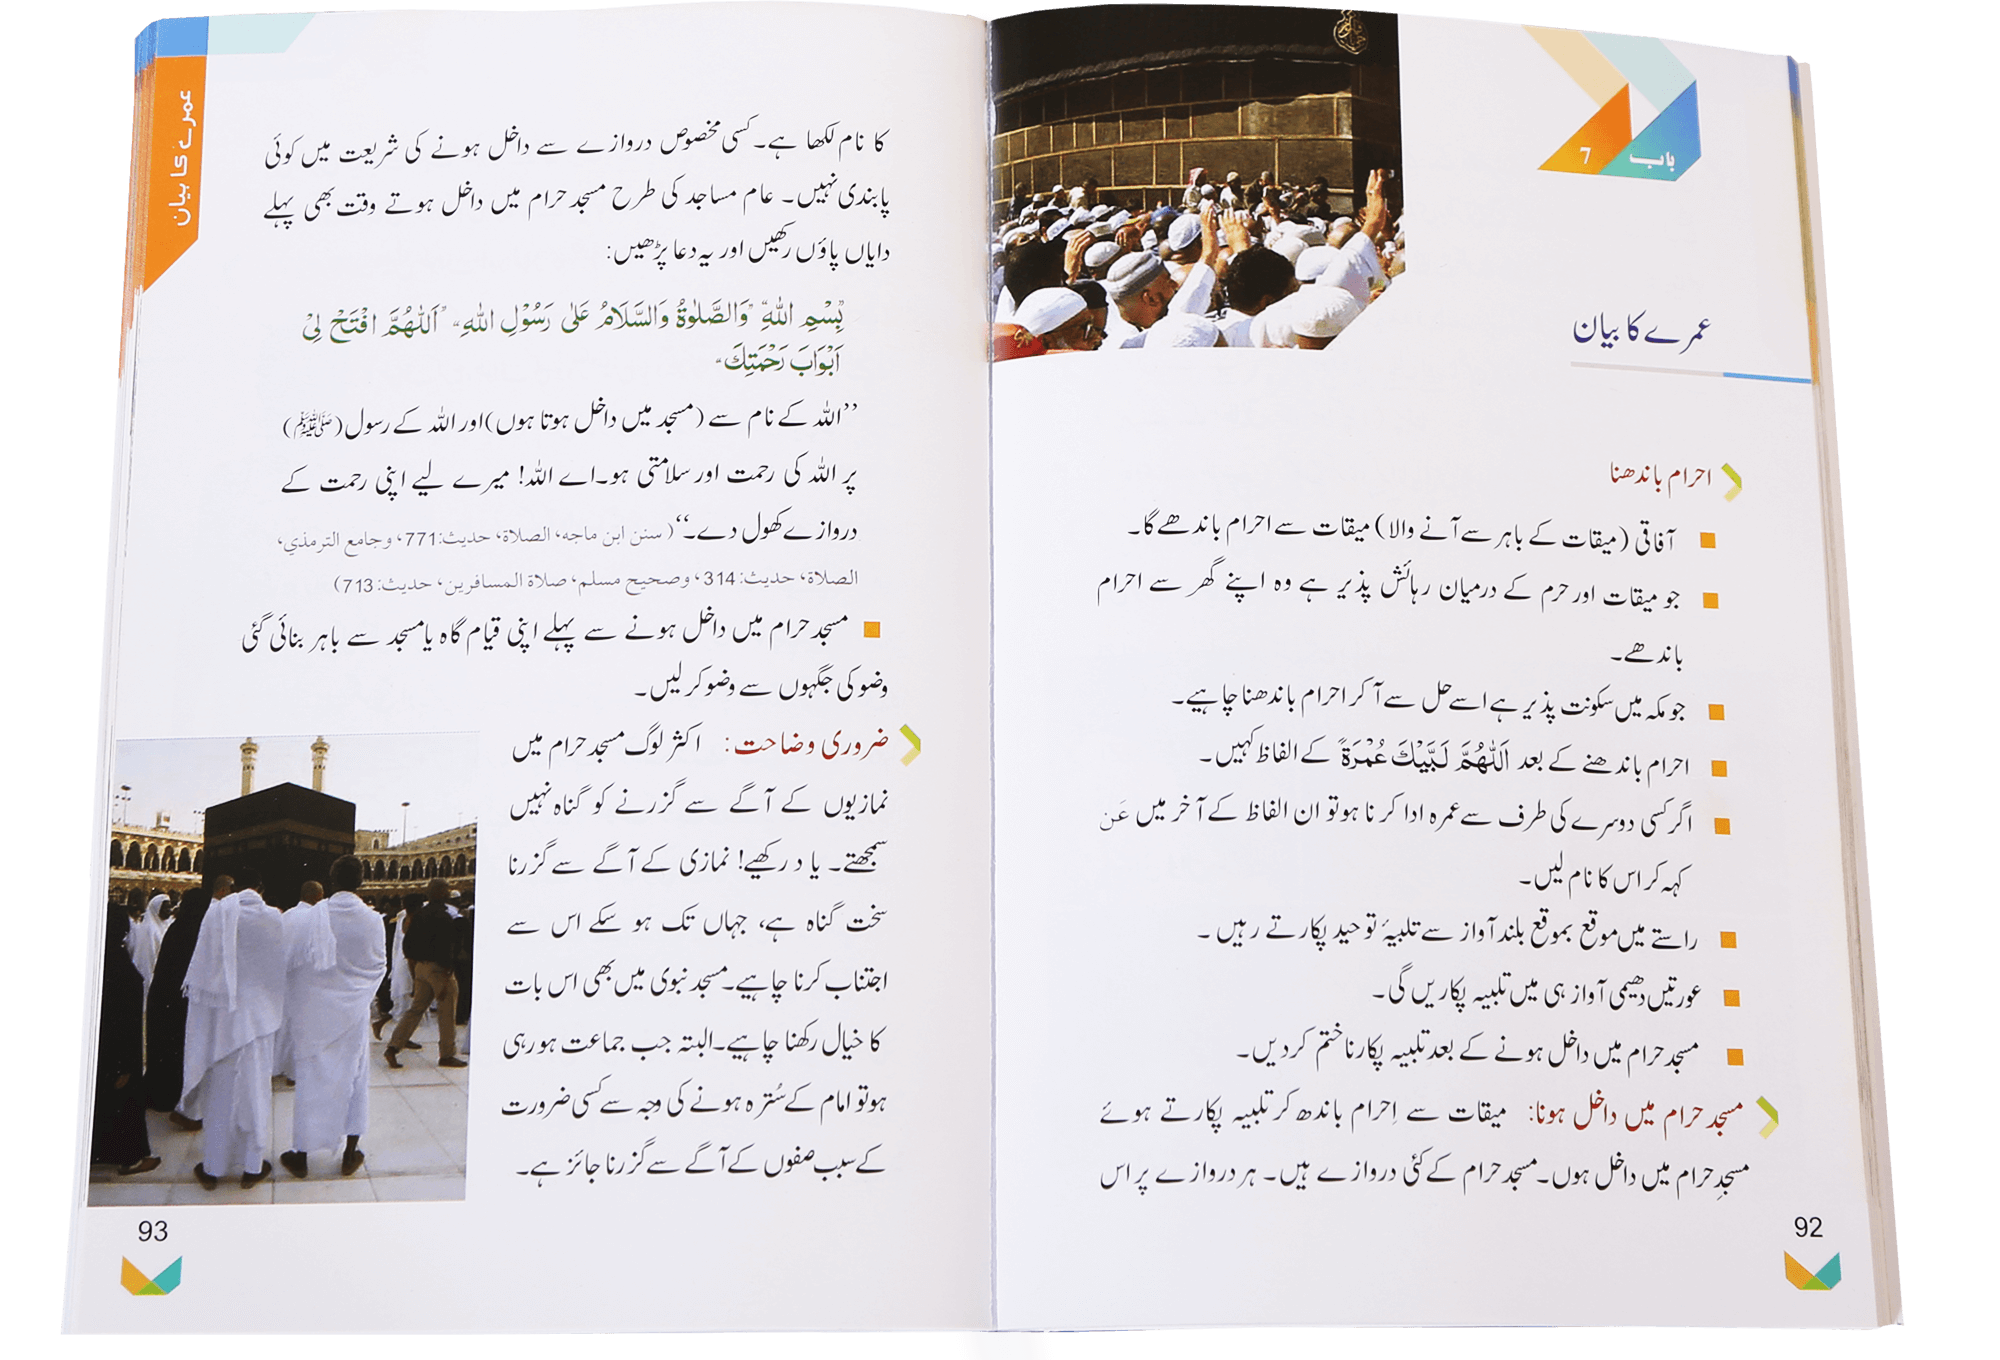 باب 7
عمرے کا بیان
احرام باندھنا
آفاقی (میقات کے باہر سے آنے والا) میقات سے احرام باندھے گا۔
جو میقات اور حرم کے درمیان رہائش پذیر ہے وہ اپنے گھر سے احرام
باندھے۔
جو مکہ میں سکونت پذیر ہے اسے حل سے آ کر احرام باندھنا چاہیے۔
احرام باندھنے کے بعد اَللّٰهُمَّ لَبَّيْكَ عُمْرَةً کے الفاظ کہیں۔
اگر کسی دوسرے کی طرف سے عمرہ ادا کرنا ہو تو ان الفاظ کے آخر میں عَن
کہہ کر اس کا نام لیں۔
راستے میں موقع بموقع بلند آواز سے تلبیۂ توحید پکارتے رہیں۔
عورتیں دھیمی آواز ہی میں تلبیہ پکاریں گی۔
مسجد حرام میں داخل ہونے کے بعد تلبیہ پکارنا ختم کر دیں۔
مسجد حرام میں داخل ہونا: میقات سے اِحرام باندھ کر تلبیہ پکارتے ہوئے
مسجدِ حرام میں داخل ہوں۔ مسجد حرام کے کئی دروازے ہیں۔ ہر دروازے پر اس
92
عمرے کا بیان
کا نام لکھا ہے۔ کسی مخصوص دروازے سے داخل ہونے کی شریعت میں کوئی
پابندی نہیں۔ عام مساجد کی طرح مسجد حرام میں داخل ہوتے وقت بھی پہلے
دایاں پاؤں رکھیں اور یہ دعا پڑھیں:
بِسْمِ اللّٰهِ، وَالصَّلٰوةُ وَالسَّلَامُ عَلٰى رَسُوْلِ اللّٰهِ، اَللّٰهُمَّ افْتَحْ لِيْ
اَبْوَابَ رَحْمَتِكَ
’’اللہ کے نام سے (مسجد میں داخل ہوتا ہوں) اور اللہ کے رسول (ﷺ)
پر اللہ کی رحمت اور سلامتی ہو۔ اے اللہ! میرے لیے اپنی رحمت کے
دروازے کھول دے۔‘‘ (سنن ابن ماجه، الصلاة، حديث:771، وجامع الترمذي،
الصلاة، حديث:314، وصحيح مسلم، صلاة المسافرين، حديث:713)
مسجد حرام میں داخل ہونے سے پہلے اپنی قیام گاہ یا مسجد سے باہر بنائی گئی
وضو کی جگہوں سے وضو کر لیں۔
ضروری وضاحت: اکثر لوگ مسجد حرام میں
نمازیوں کے آگے سے گزرنے کو گناہ نہیں
سمجھتے۔ یاد رکھیے! نمازی کے آگے سے گزرنا
سخت گناہ ہے، جہاں تک ہو سکے اس سے
اجتناب کرنا چاہیے۔ مسجد نبوی میں بھی اس بات
کا خیال رکھنا چاہیے۔ البتہ جب جماعت ہو رہی
ہو تو امام کے سُترہ ہونے کی وجہ سے کسی ضرورت
کے سبب صفوں کے آگے سے گزرنا جائز ہے۔
93